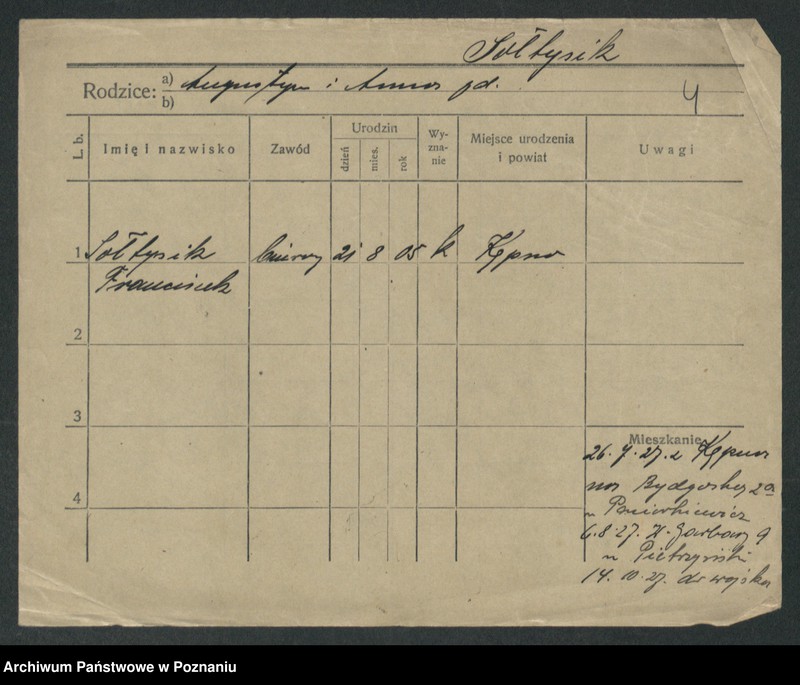 Sołtysik
Rodzice: a) Augustyn i Anna
b)
4
L. b. Imię i nazwisko Zawód Urodzin dzień mies. rok Wyznanie Miejsce urodzenia i powiat Uwagi
1 Sołtysik 21 8 05 k Kępno
Franciszek
2
3
Mieszkanie
26.7.27. z Kępna
4
na Bydgoską 2a
6.8.27. W. Garbary 9
14.10.27. do wojska
Archiwum Państwowe w Poznaniu